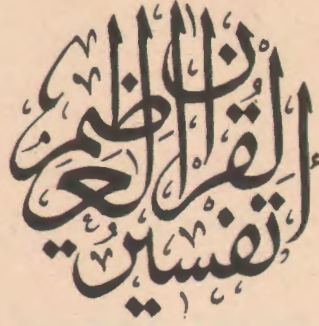 تفسير
القرآن
العظيم